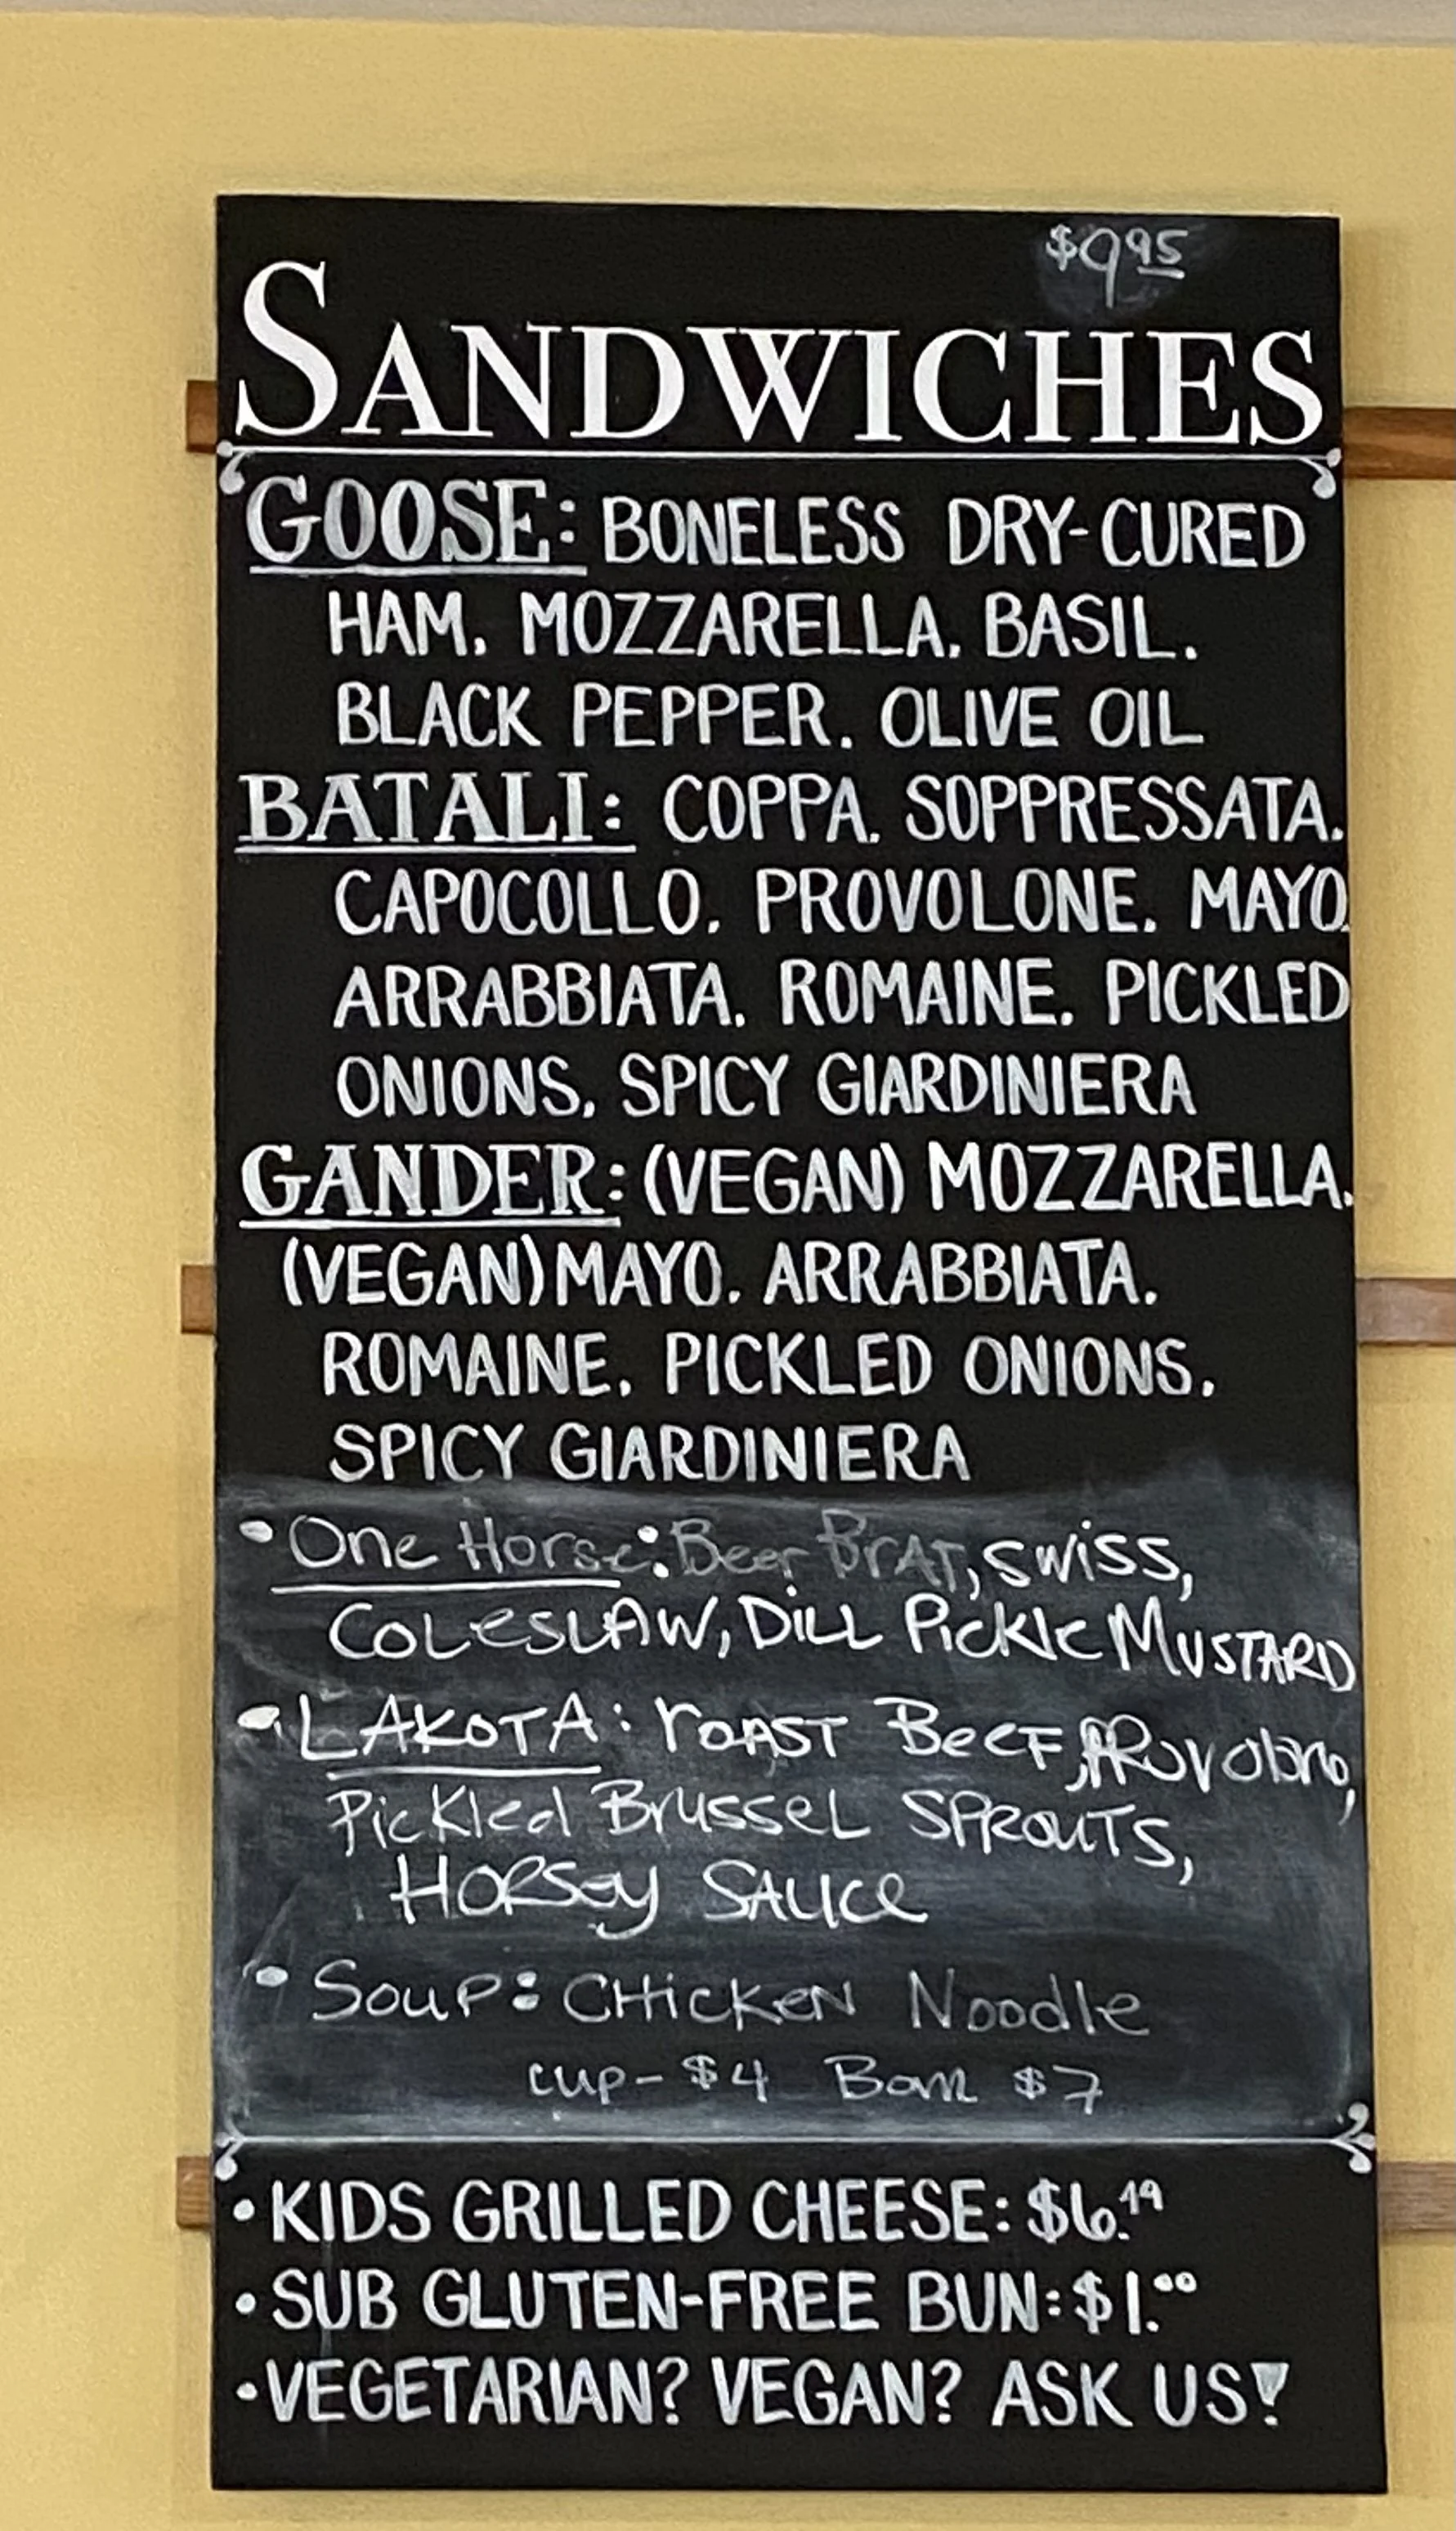 $9.95
SANDWICHES
GOOSE: BONELESS DRY-CURED
HAM, MOZZARELLA, BASIL,
BLACK PEPPER, OLIVE OIL
BATALI: COPPA, SOPPRESSATA,
CAPOCOLLO, PROVOLONE, MAYO,
ARRABBIATA, ROMAINE, PICKLED
ONIONS, SPICY GIARDINIERA
GANDER: (VEGAN) MOZZARELLA,
(VEGAN) MAYO, ARRABBIATA,
ROMAINE, PICKLED ONIONS,
SPICY GIARDINIERA
• One Horse: Beer BrAT, swiss,
COLeSLAW, DiLL PicKle MUSTARD
• LAKOTA: roAST BeeF, PRovolone,
PicKled BrusseL SPRouTS,
HORSey SAUCe
• Soup: CHicKeN Noodle
cup- $4 Bowl $7
• KIDS GRILLED CHEESE: $6.49
• SUB GLUTEN-FREE BUN: $1.00
• VEGETARIAN? VEGAN? ASK US!